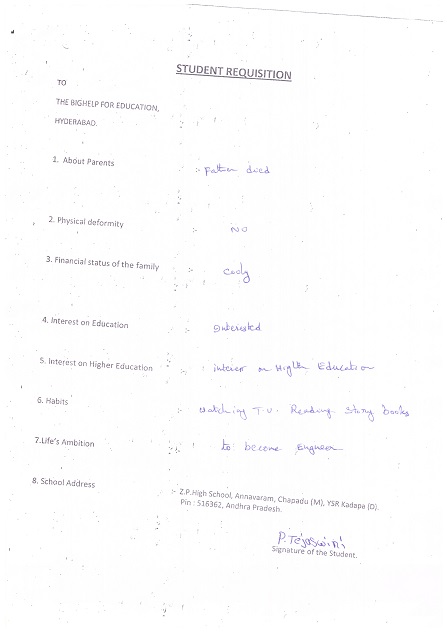 STUDENT REQUISITION
TO
THE BIGHELP FOR EDUCATION,
HYDERABAD.
1. About Parents :- Father died
2. Physical deformity :- NO
3. Financial status of the family :-
4. Interest on Education :- Interested
5. Interest on Higher Education :- interest on Higher Education
6. Habits :- watching T.V. Reading Story books
7.Life's Ambition :- to become Engineer
8. School Address :- Z.P.High School, Annavaram, Chapadu (M), YSR Kadapa (D).
Pin : 516362, Andhra Pradesh.
P. Tejaswini
Signature of the Student.